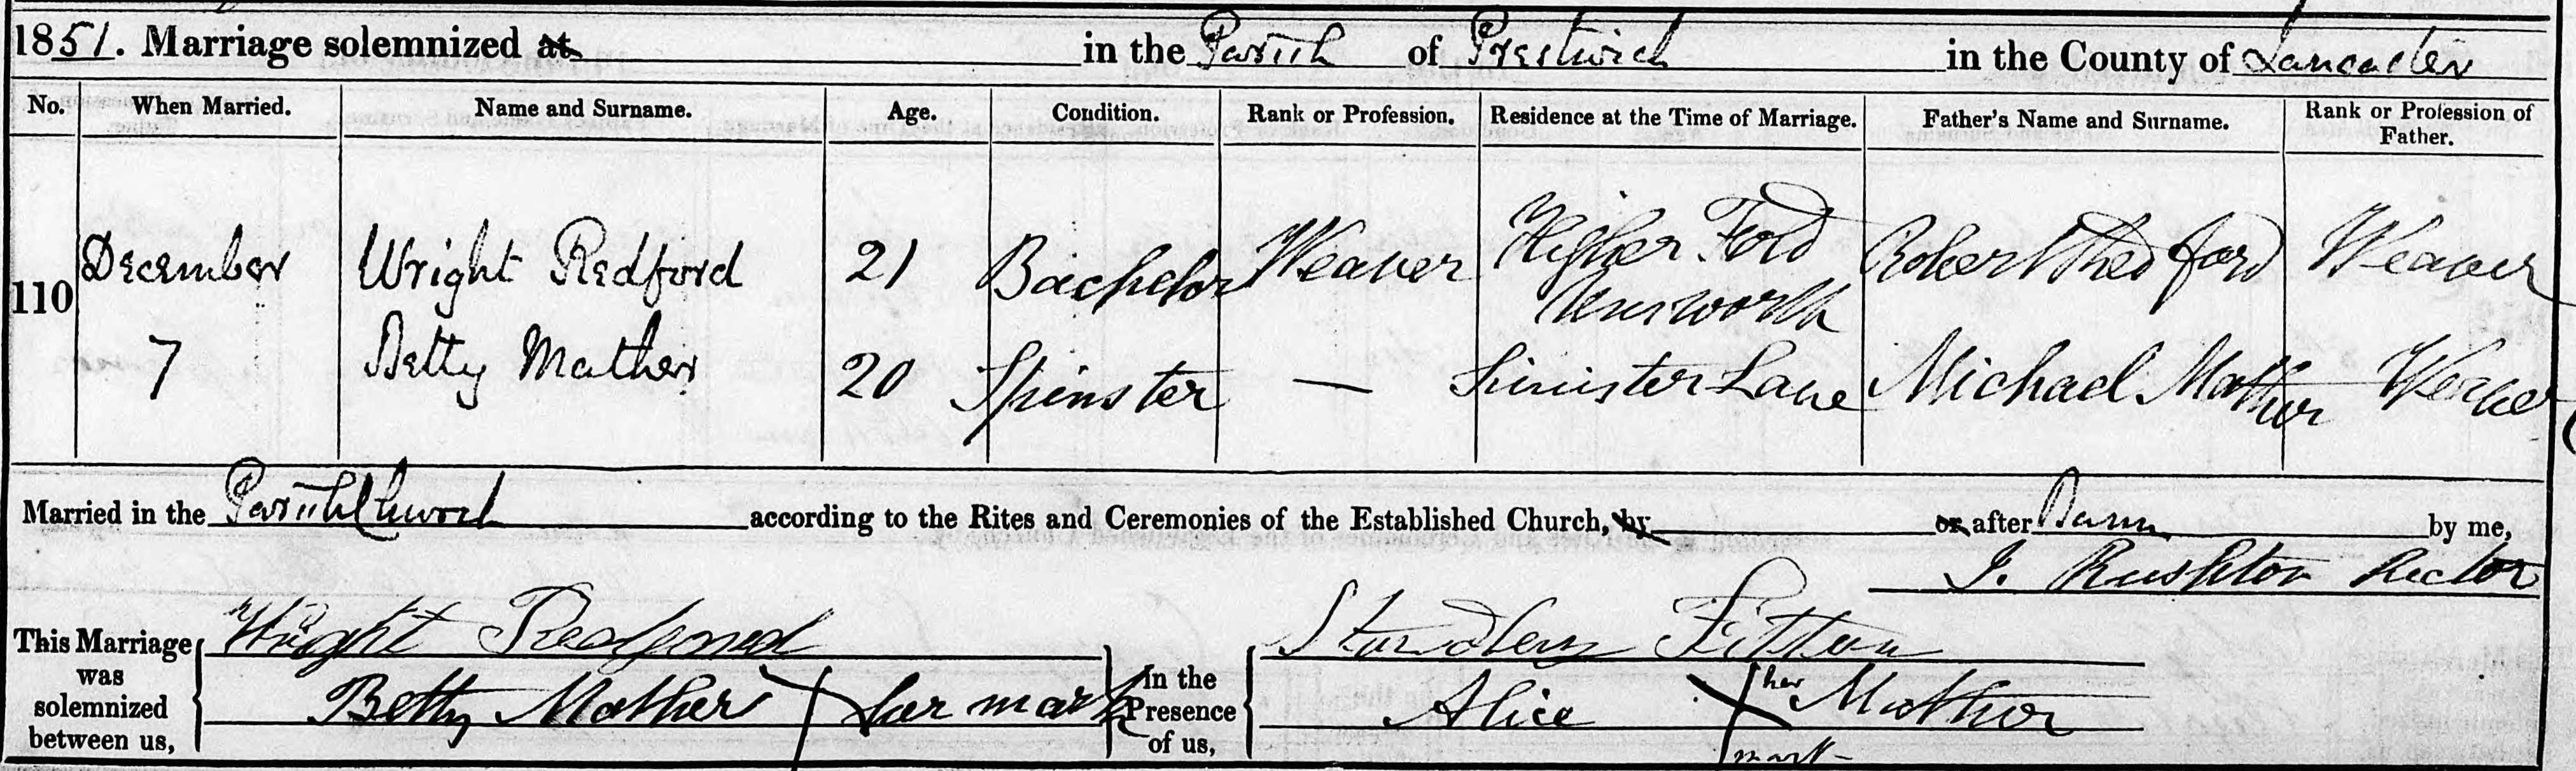 1851. Marriage solemnized at in the Parish of Prestwich in the County of Lancaster
No. When Married. Name and Surname. Age. Condition. Rank or Profession. Residence at the Time of Marriage. Father's Name and Surname. Rank or Profession of Father.
110 December 7
Wright Redford 21 Bachelor Weaver Higher Fold Unsworth Robert Redford Weaver
Betty Mather 20 Spinster — Lane Michael Mather Weaver
Married in the Parish Church according to the Rites and Ceremonies of the Established Church, by or after Banns by me,
J. Rushton Rector
This Marriage was solemnized between us,
Wright Redford
Betty Mather X her mark
In the Presence of us,
Fitton
Alice X her mark Mather